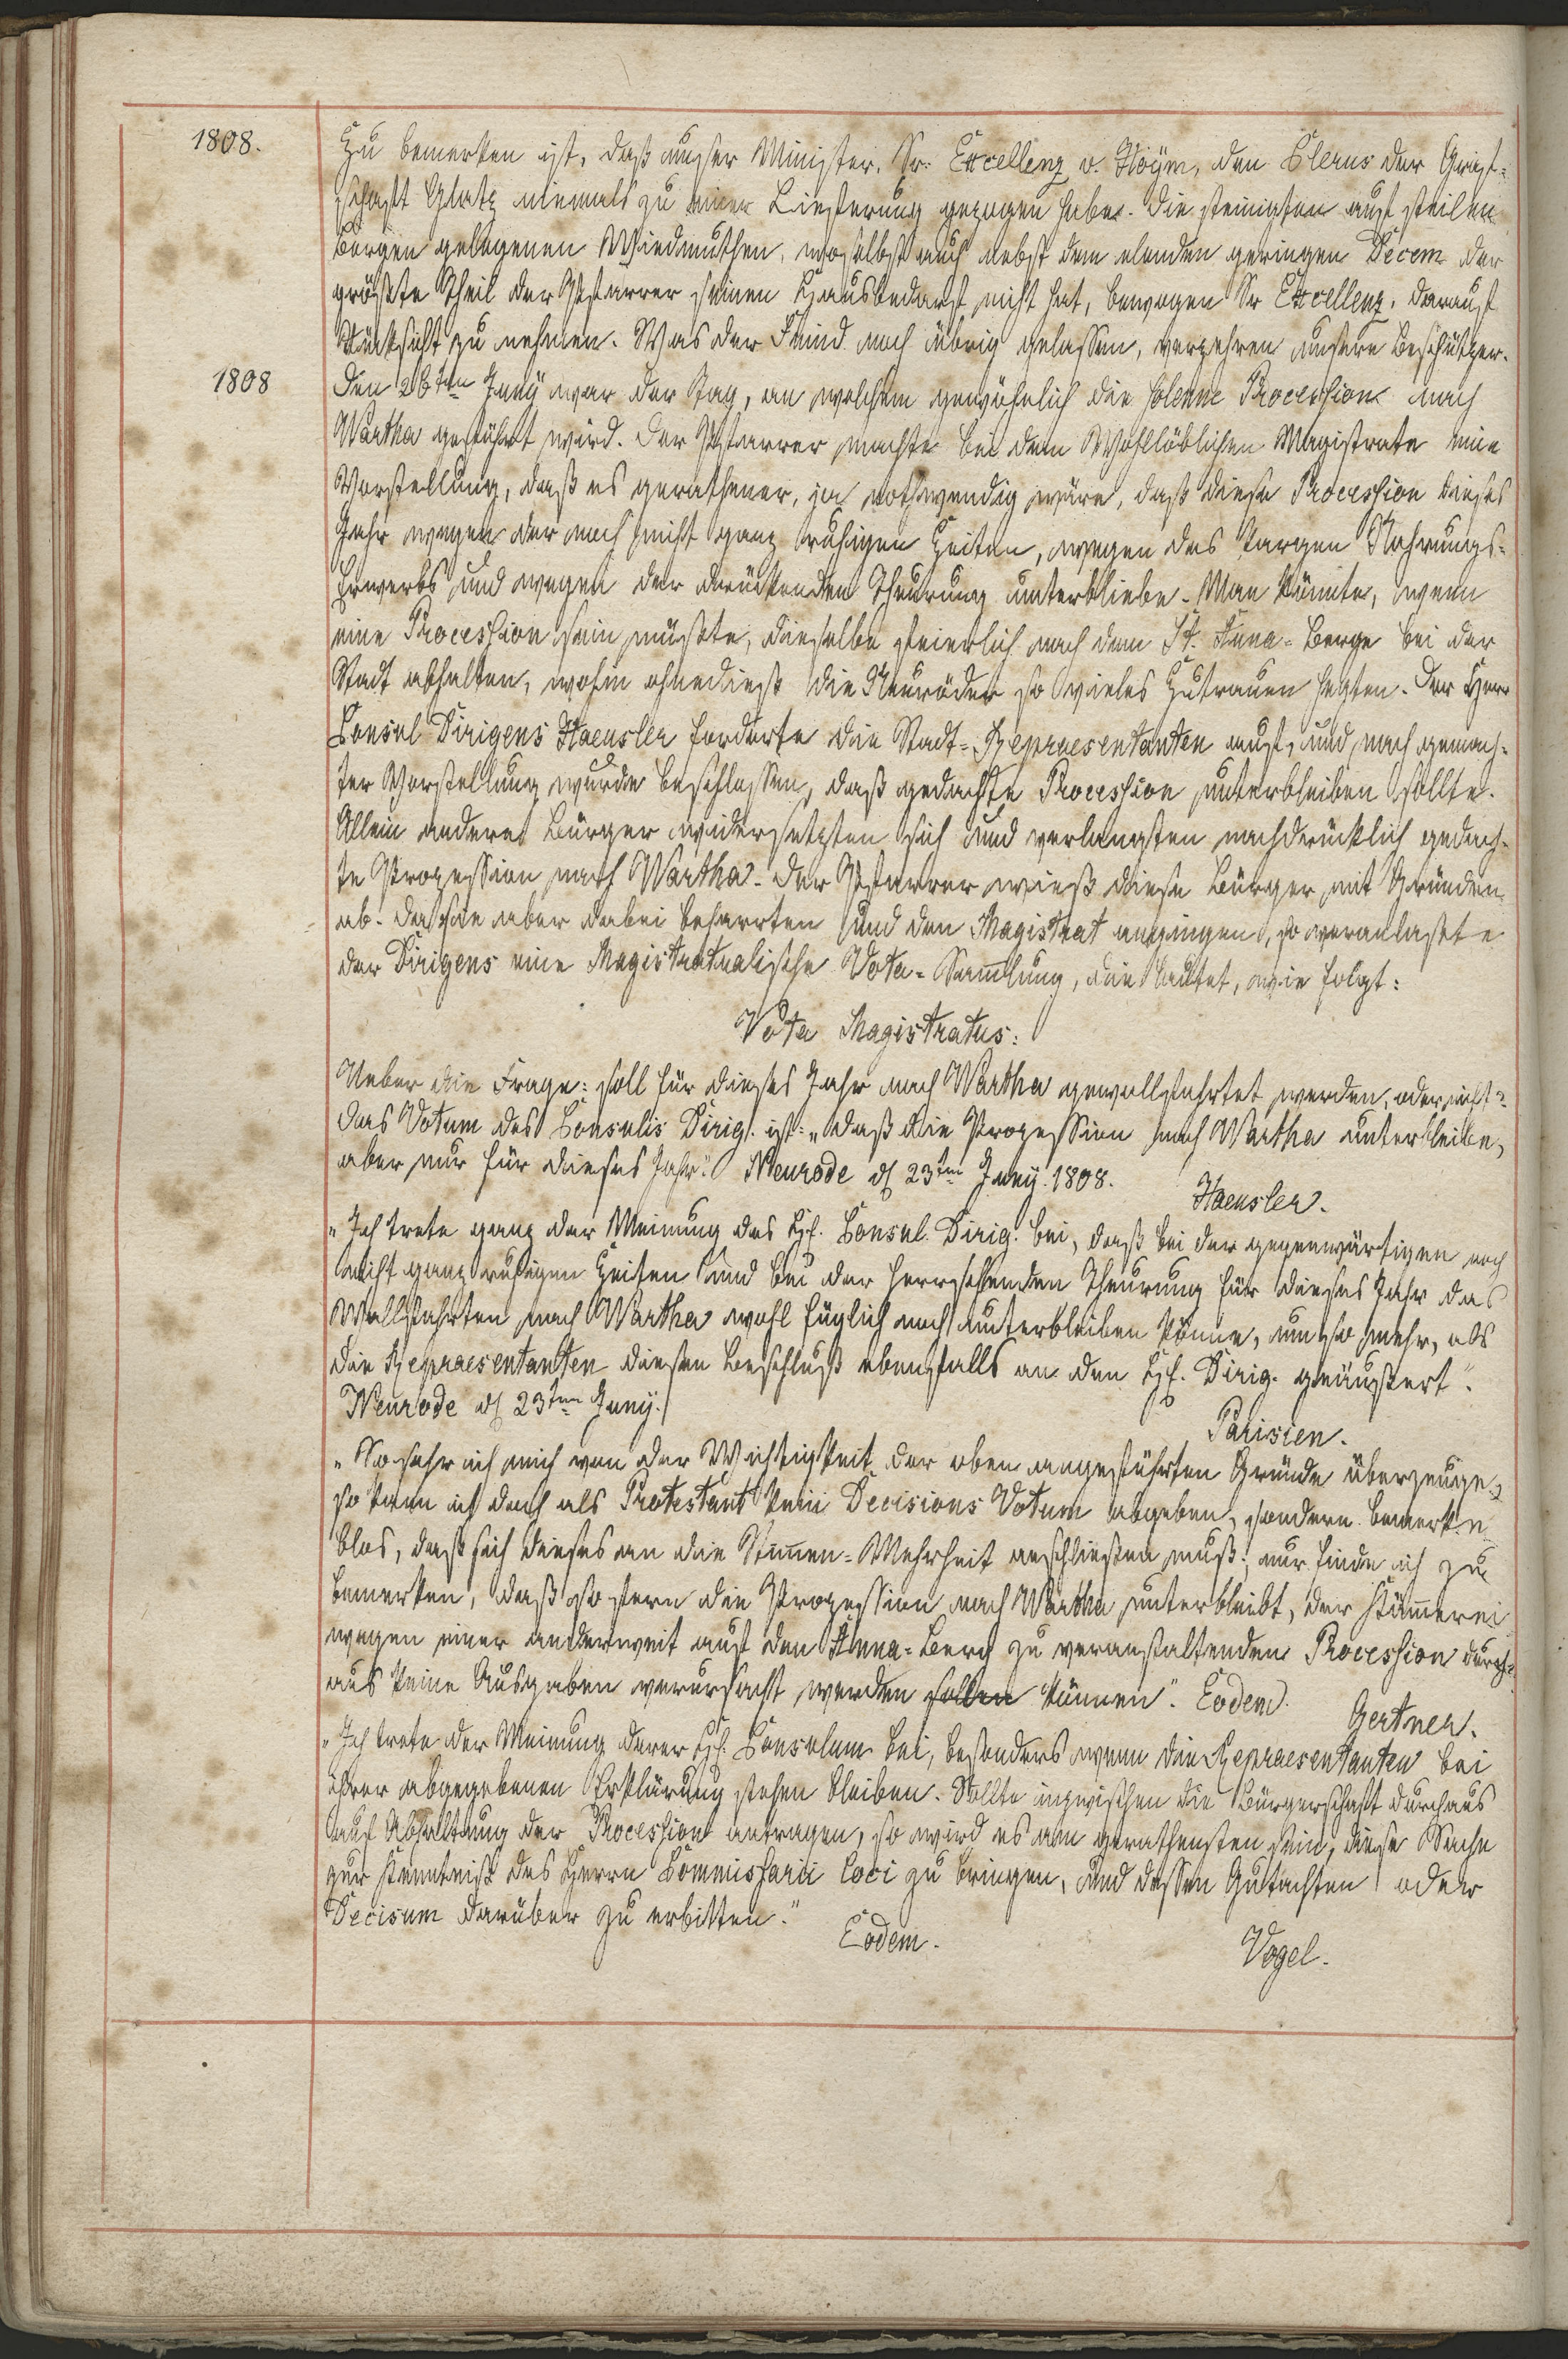 1808. Zu bemerken ist, daß unser Minister, Sr: Excellenz v. Hoÿm, den Clerus der Graf-
schaft Glatz niemals zu einer Lieferung gezogen habe. Die steinigsten auf steilen
Bergen gelegenen Wiedmuthen, woselbst auch nebst dem elenden geringen Decem der
größte Theil der Pfarrer seinen Hausbedarf nicht hat, bewogen Sr Excellenz, darauf
Rücksicht zu nehmen. Was der Feind noch übrig gelassen, verzehren unsere Beschützer.
1808 Den 26ten Juny war der Tag, an welchem gewöhnlich die solenne Procession nach
Wartha geführt wird. Der Pfarrer machte bei dem Wohllöblichen Magistrate eine
Vorstellung, daß es gerathener, ja nothwendig wäre, daß diese Procession dieses
Jahr wegen der noch nicht ganz ruhigen Zeiten, wegen des kargen Nahrungs-
Erwerbs und wegen der drückenden Theurung unterbliebe. Man könnte, wenn
eine Procession sein müßte, dieselbe feierlich nach dem St. Anna-Berge bei der
Stadt abhalten, wohin ohnedieß die Neuröder so vieles Zutrauen hegten. Der Herr
Consul Dirigens Haeusler forderte die Stadt-Repraesentanten auf, und nach gemach-
ter Vorstellung wurde beschlossen, daß gedachte Procession unterbleiben sollte.
Allein andere Bürger widersetzten sich und verlangten nachdrücklich gedach-
te Prozession nach Wartha. Der Pfarrer wieß diese Bürger mit Gründen
ab. Da sie aber dabei beharrten und den Magistrat angingen, so veranlaßte
der Dirigens eine Magistratualische Vota-Sammlung, die lautet, wie folgt:
Vota Magistratus:
Ueber die Frage: soll für dieses Jahr nach Wartha gewallfahrtet werden, oder nicht?
Das Votum des Consulis Dirig. ist: „daß die Prozession nach Wartha unterbleibe,
aber nur für dieses Jahr." Neurode d 23ten Juny. 1808. Haeusler.
„Ich trete ganz der Meinung des H. Consul. Dirig. bei, daß bei der gegenwärtigen noch
nicht ganz ruhigen Zeiten und bei der herrschenden Theurung für dieses Jahr das
Wallfahrten nach Wartha wohl füglich noch unterbleiben könne, um so mehr, als
die Repraesentanten diesen Beschluß ebenfalls an den H. Dirig. geäußert".
Neurode d 23ten Juny. Parisien.
„So sehr ich mich von der Wichtigkeit der oben angeführten Gründe überzeuge,
so kann ich doch als Protestant kein Decisions Votum abgeben, sondern bemerke
blos, daß sich dieses an die Stimmen-Mehrheit anschließen muß; nur finde ich zu
bemerken, daß so fern die Prozession nach Wartha unterbleibt, der Kämmerei
wegen einer anderweit auf den Anna-Berg zu veranstaltenden Procession durch-
aus keine Ausgaben verursacht werden sollen können". Eodem. Gertner.
„Ich trete der Meinung derer H. Consulum bei, besonders wenn die Repraesentanten bei
ihrer abgegebenen Erklärung stehen bleiben. Sollte inzwischen die Bürgerschaft durchaus
auf Abhaltung der Procession antragen, so wird es am gerathensten sein, diese Sache
zur Kenntniß des Herrn Commissarii loci zu bringen, und dessen Gutachten oder
Decisum darüber zu erbitten."
Eodem. Vogel.